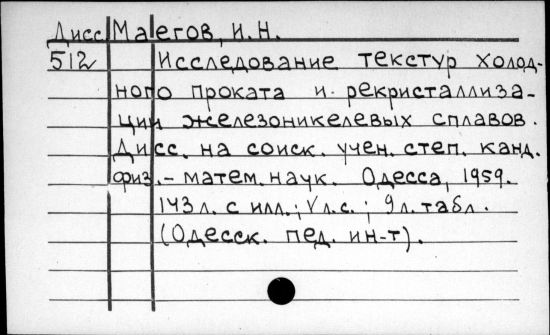 Дисс Малегов, И.Н.
512 Исследование текстур холод-
ного проката и рекристаллиза-
ции железоникелевых сплавов.
Дисс. на соиск. учен. степ. канд.
физ.-матем. наук. Одесса, 1959.
143 л. с илл.; V л.с.; 9 л. табл.
(Одесск. пед. ин-т).